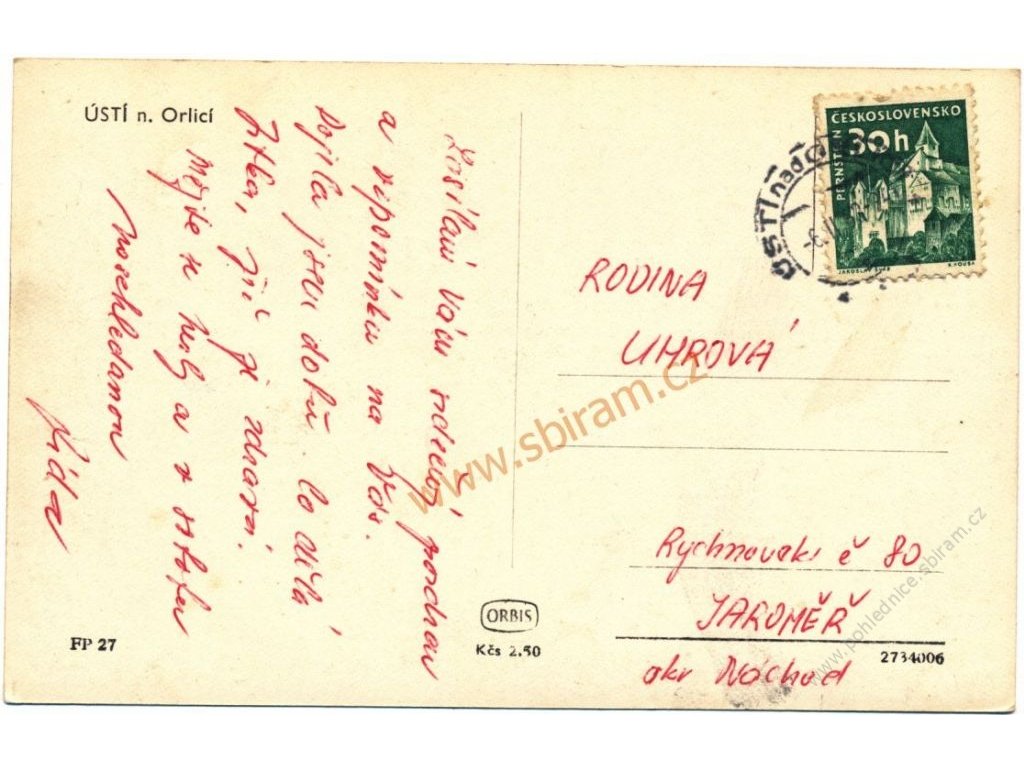 ÚSTÍ n. Orlicí
Zasílám vám srdečný pozdrav
a vzpomínku na Vás.
Dojela jsem dobře. Co dělá
Jitka, žije zdravá.
Mějte n hezky a v
naschledanou
Lída
FP 27
ORBIS
Kčs 2.50
ČESKOSLOVENSKO
30h
PERNŠTEJN
ÚSTÍ nad
RODINA
UHROVÁ
Rychnovská č 80
JAROMĚŘ
okr Náchod
2734006
www.sbiram.cz
www.pohlednice.sbiram.cz